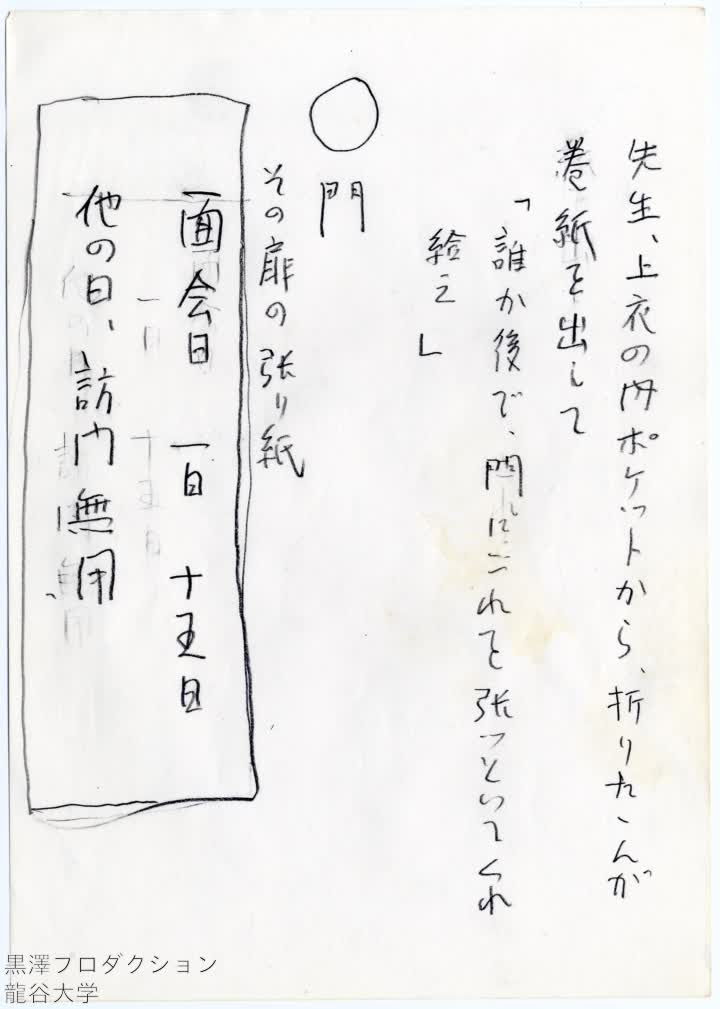 先生、上衣の内ポケットから、折りたゝんが
巻紙を出して
「誰か後で、門にこれを張っといてくれ
給え」
○
門
その扉の張り紙
面会日 一日 十五日
他の日、訪門無用
黒澤プロダクション
龍谷大学